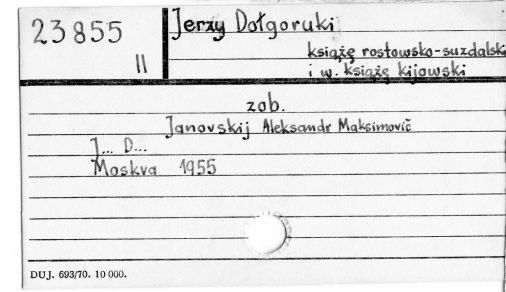 23855
II
Jerzy Dołgoruki
książę rostowsko-suzdalski
i w. książę kijowski
zob.
Janovskij Aleksandr Maksimovič
J... D...
Moskva 1955
DUJ. 693/70. 10 000.